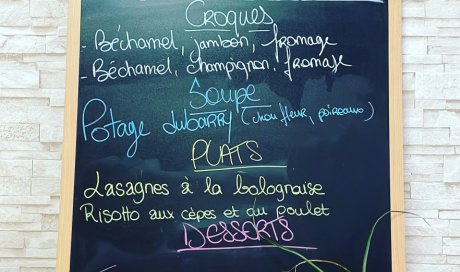 CROQUES
- Béchamel, jambon, fromage
- Béchamel, champignon, fromage
Soupe
Potage dubARRY (chou fleur, poireaux)
PLATS
Lasagnes à la bolognaise
Risotto aux cèpes et au poulet
DESSERTS